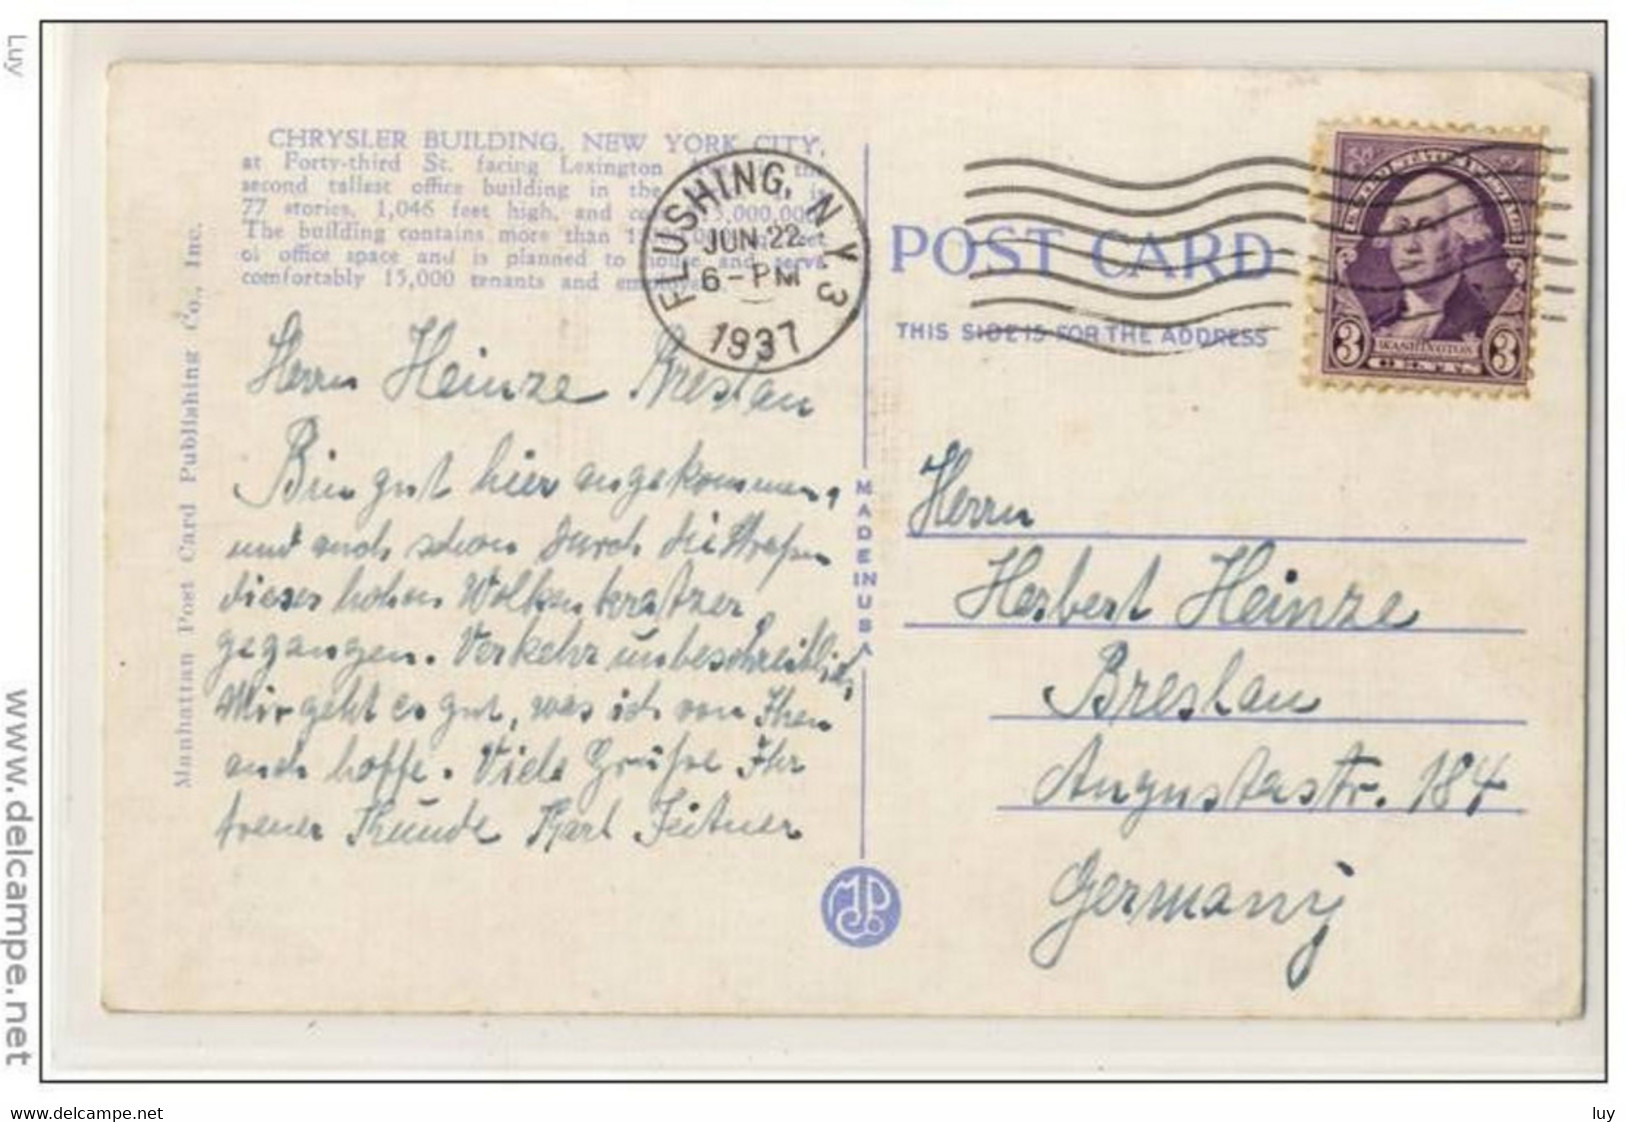 Luy
www.delcampe.net
CHRYSLER BUILDING, NEW YORK CITY,
at Forty-third St. facing Lexington
second tallest office building in the
77 stories, 1,046 feet high, and
The building contains more than
of office space and is planned to house and serve
comfortably 15,000 tenants and
Manhattan Post Card Publishing Co., Inc.
FLUSHING, N.Y. 3
JUN 22
6-PM
1937
POST CARD
THIS SIDE IS FOR THE ADDRESS
3 WASHINGTON 3
CENTS
Herrn Heinze Breslau
Bin gut hier angekommen,
und auch schon durch die Straßen
dieser hohen Wolkenkratzer
gegangen. Verkehr unbeschreiblich,
Mir geht es gut, was ich von Ihnen
auch hoffe. Viele Grüße Ihr
treuer Kunde Karl Zeitner
MADE IN USA
Herrn
Herbert Heinze
Breslau
Augustastr. 184
Germany
www.delcampe.net
luy